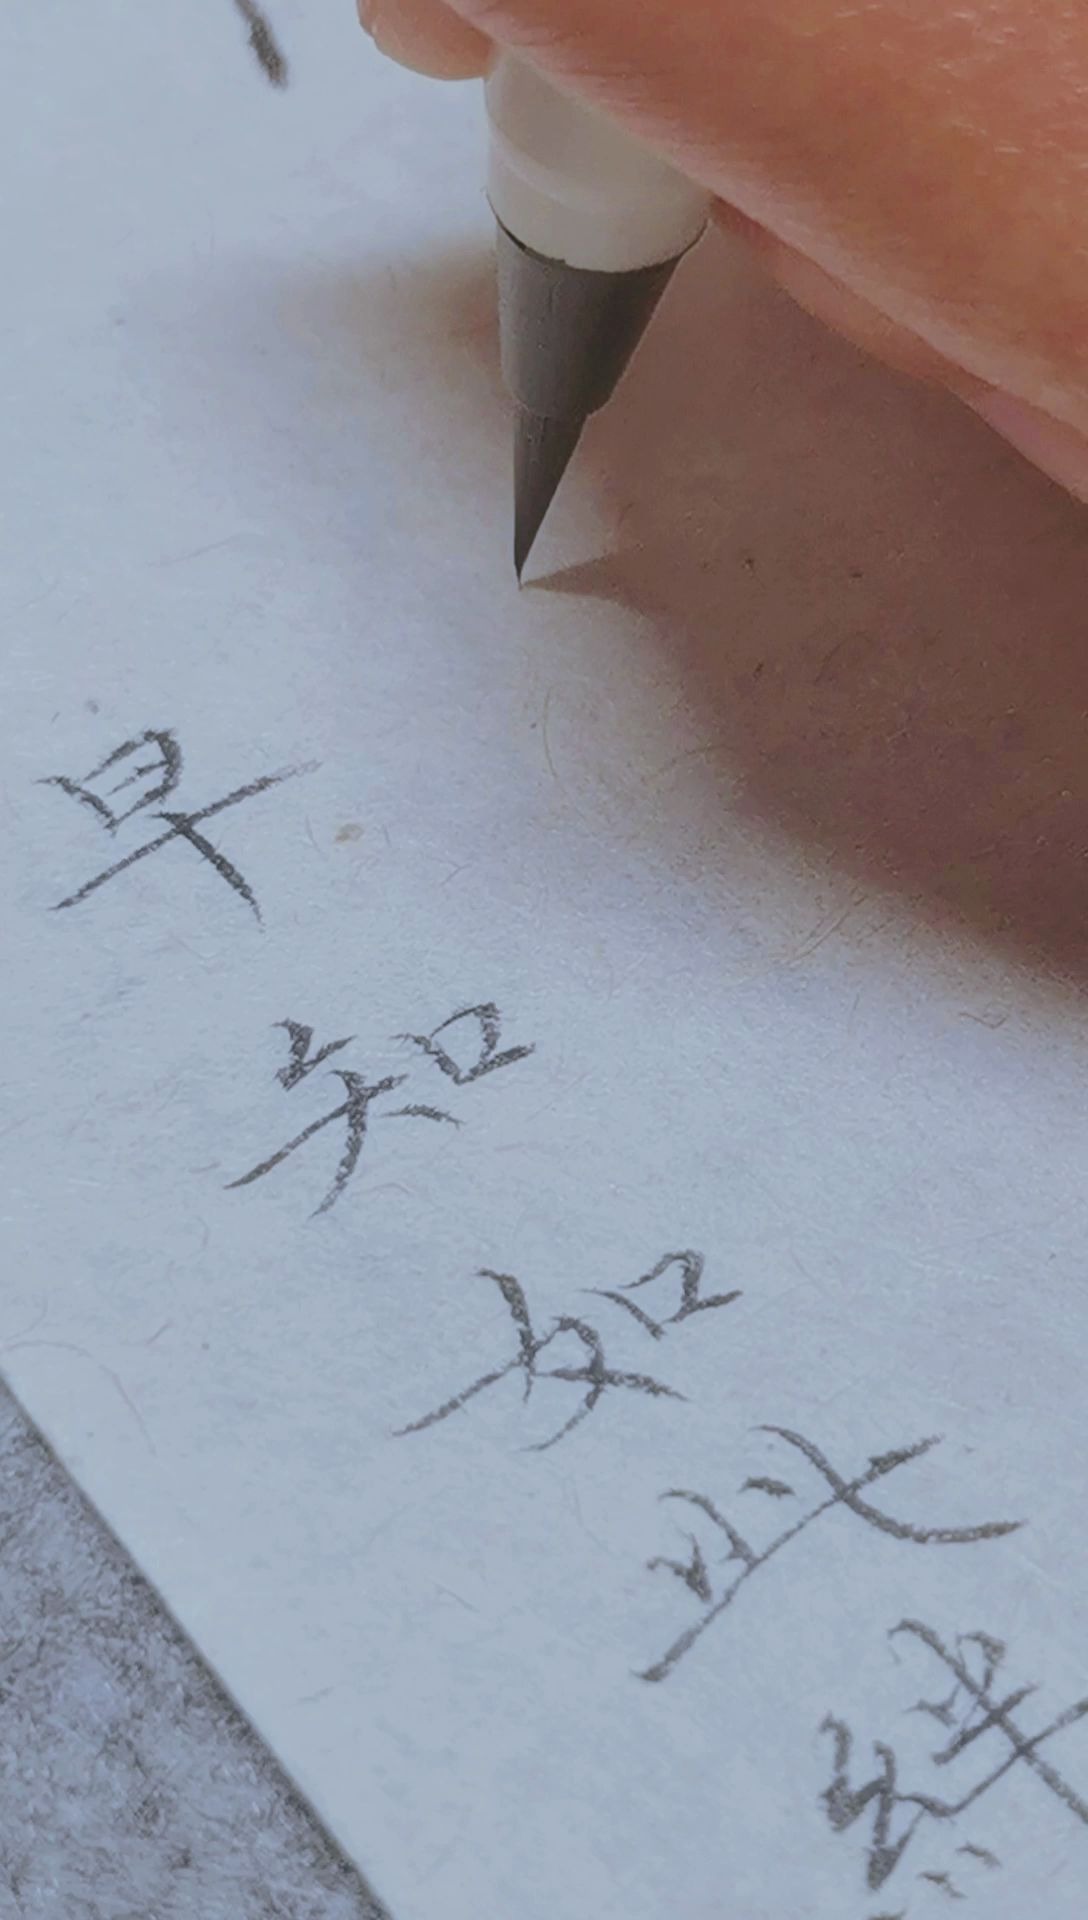 早知如此絆